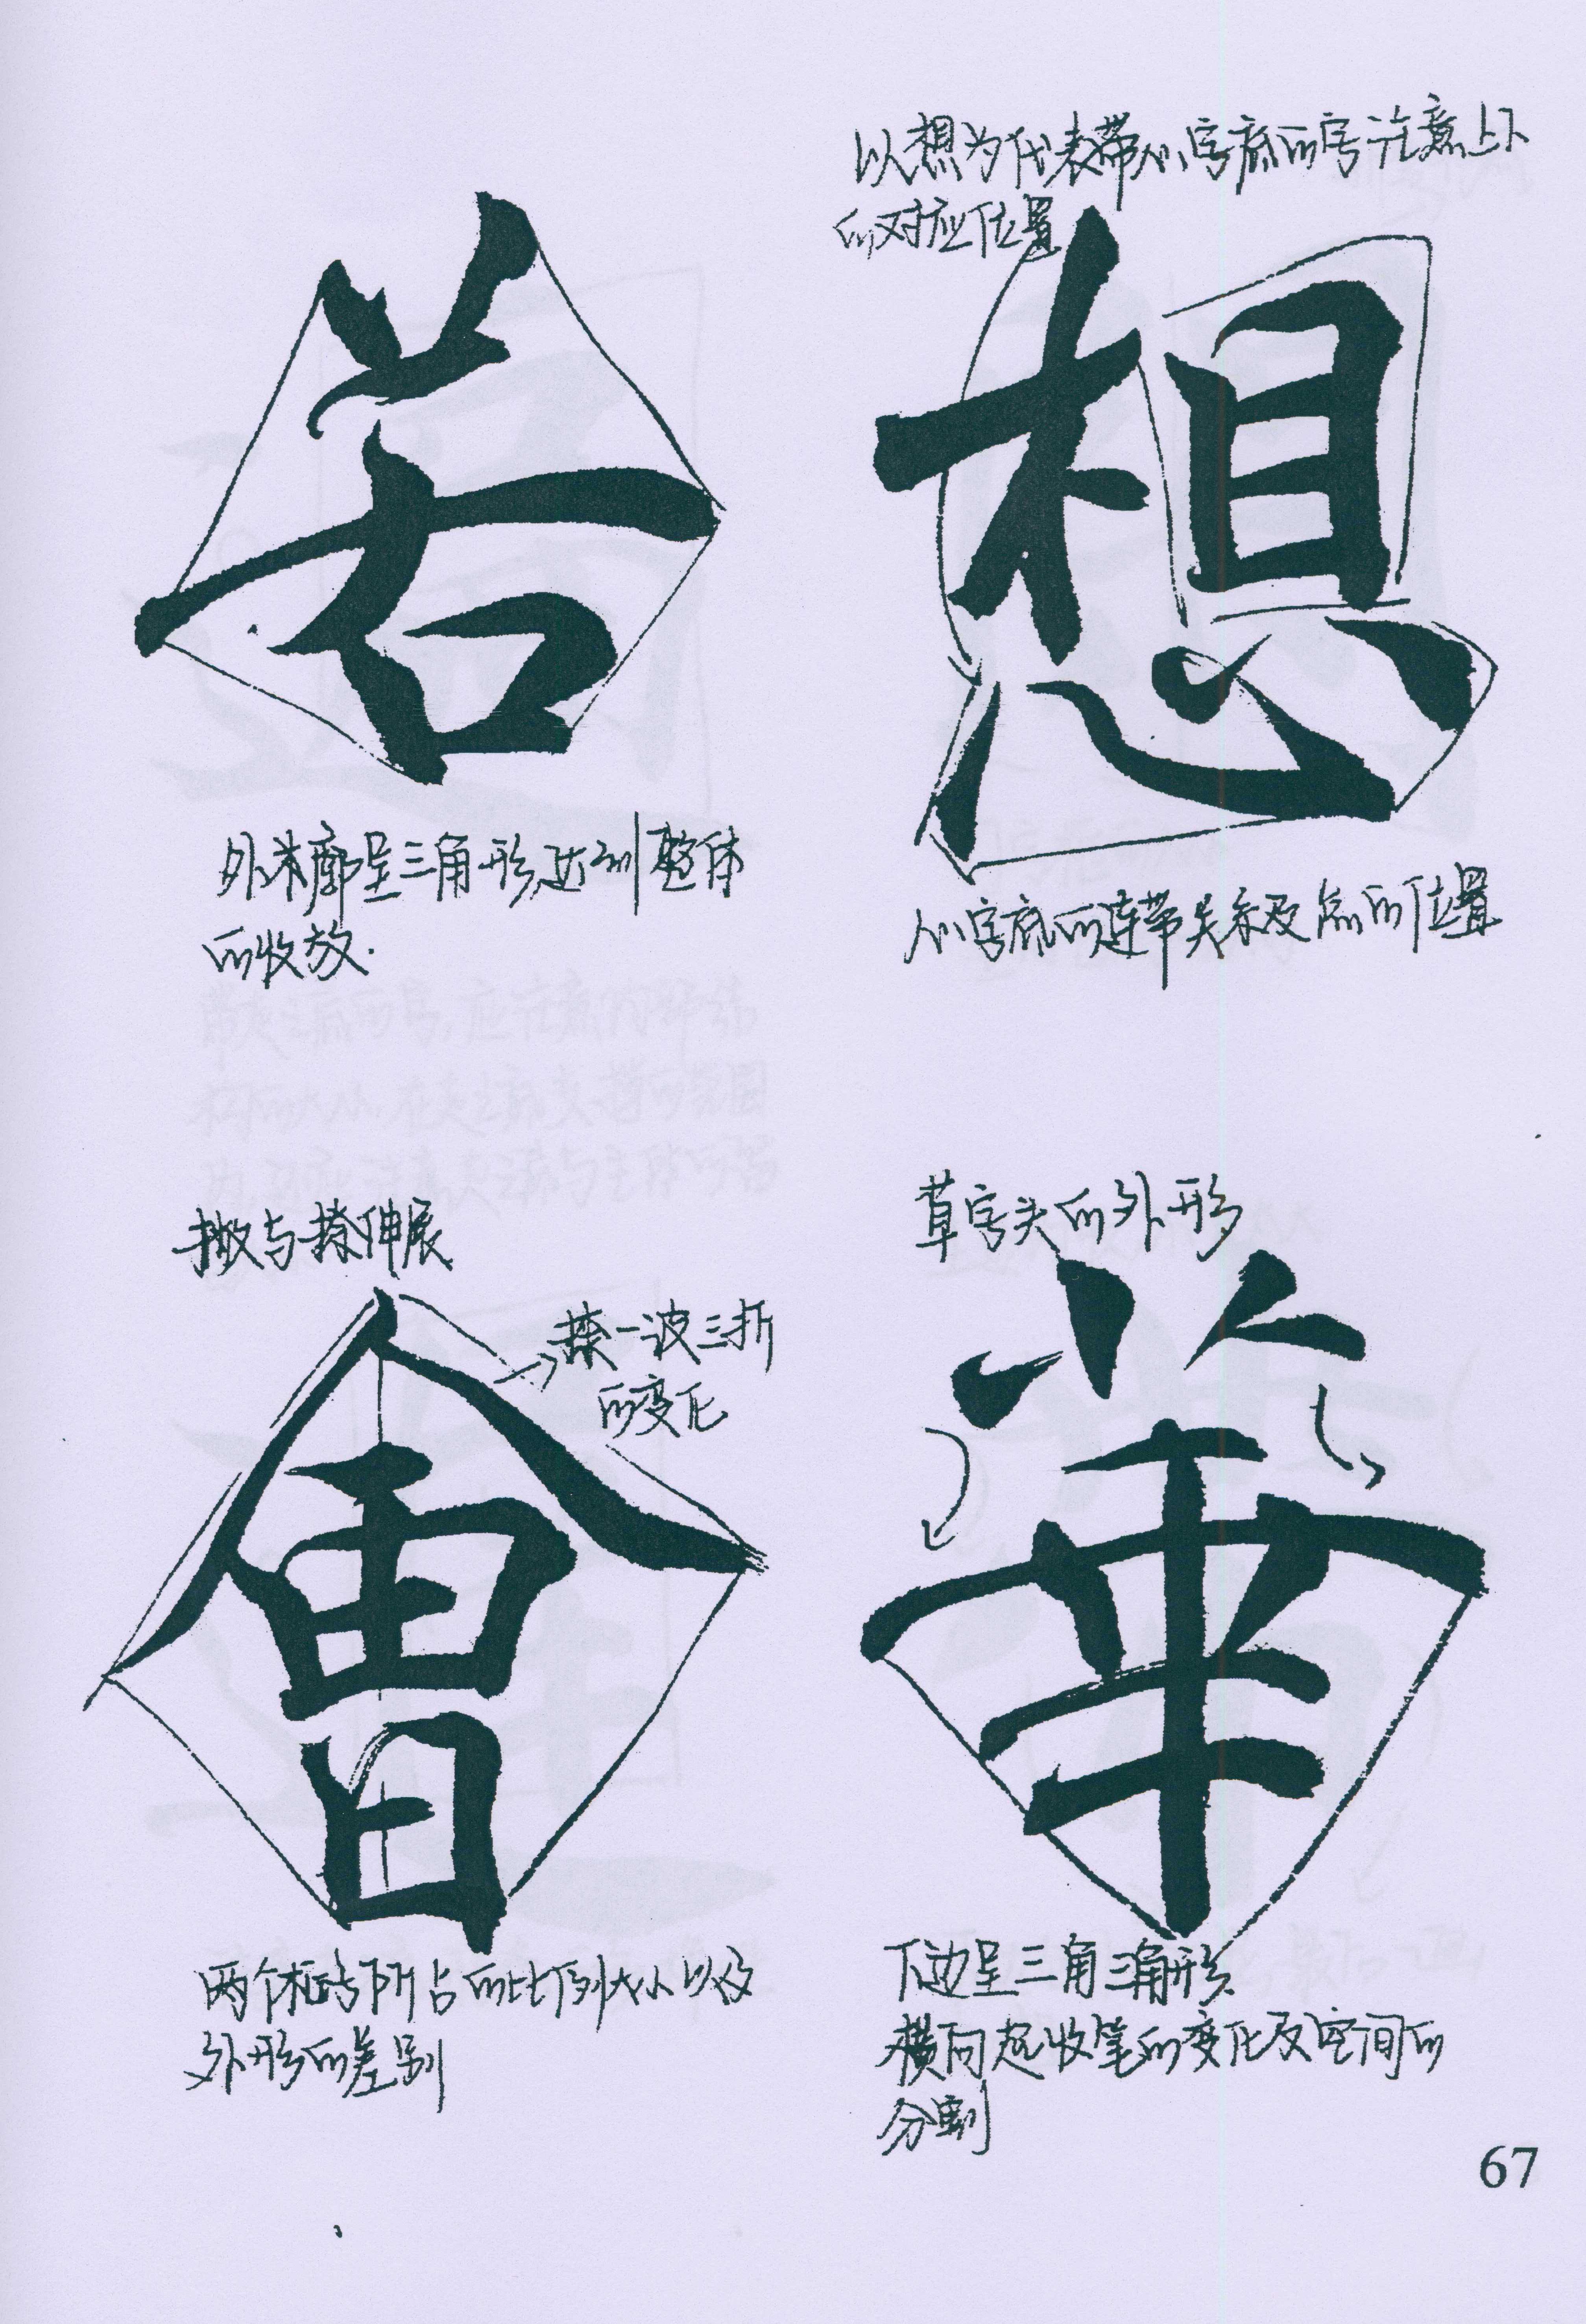 若
外轮廓呈三角形,达到整体
的收放.
以想为代表带心字底的字注意上下
的对应位置
想
心字底的连带关系及点的位置
撇与捺伸展
捺一波三折
的变化
會
两个框字所占的比例大小以及
外形的差别
草字头的外形
華
下边呈三角三角形.
横向起收笔的变化及空间的
分割
67